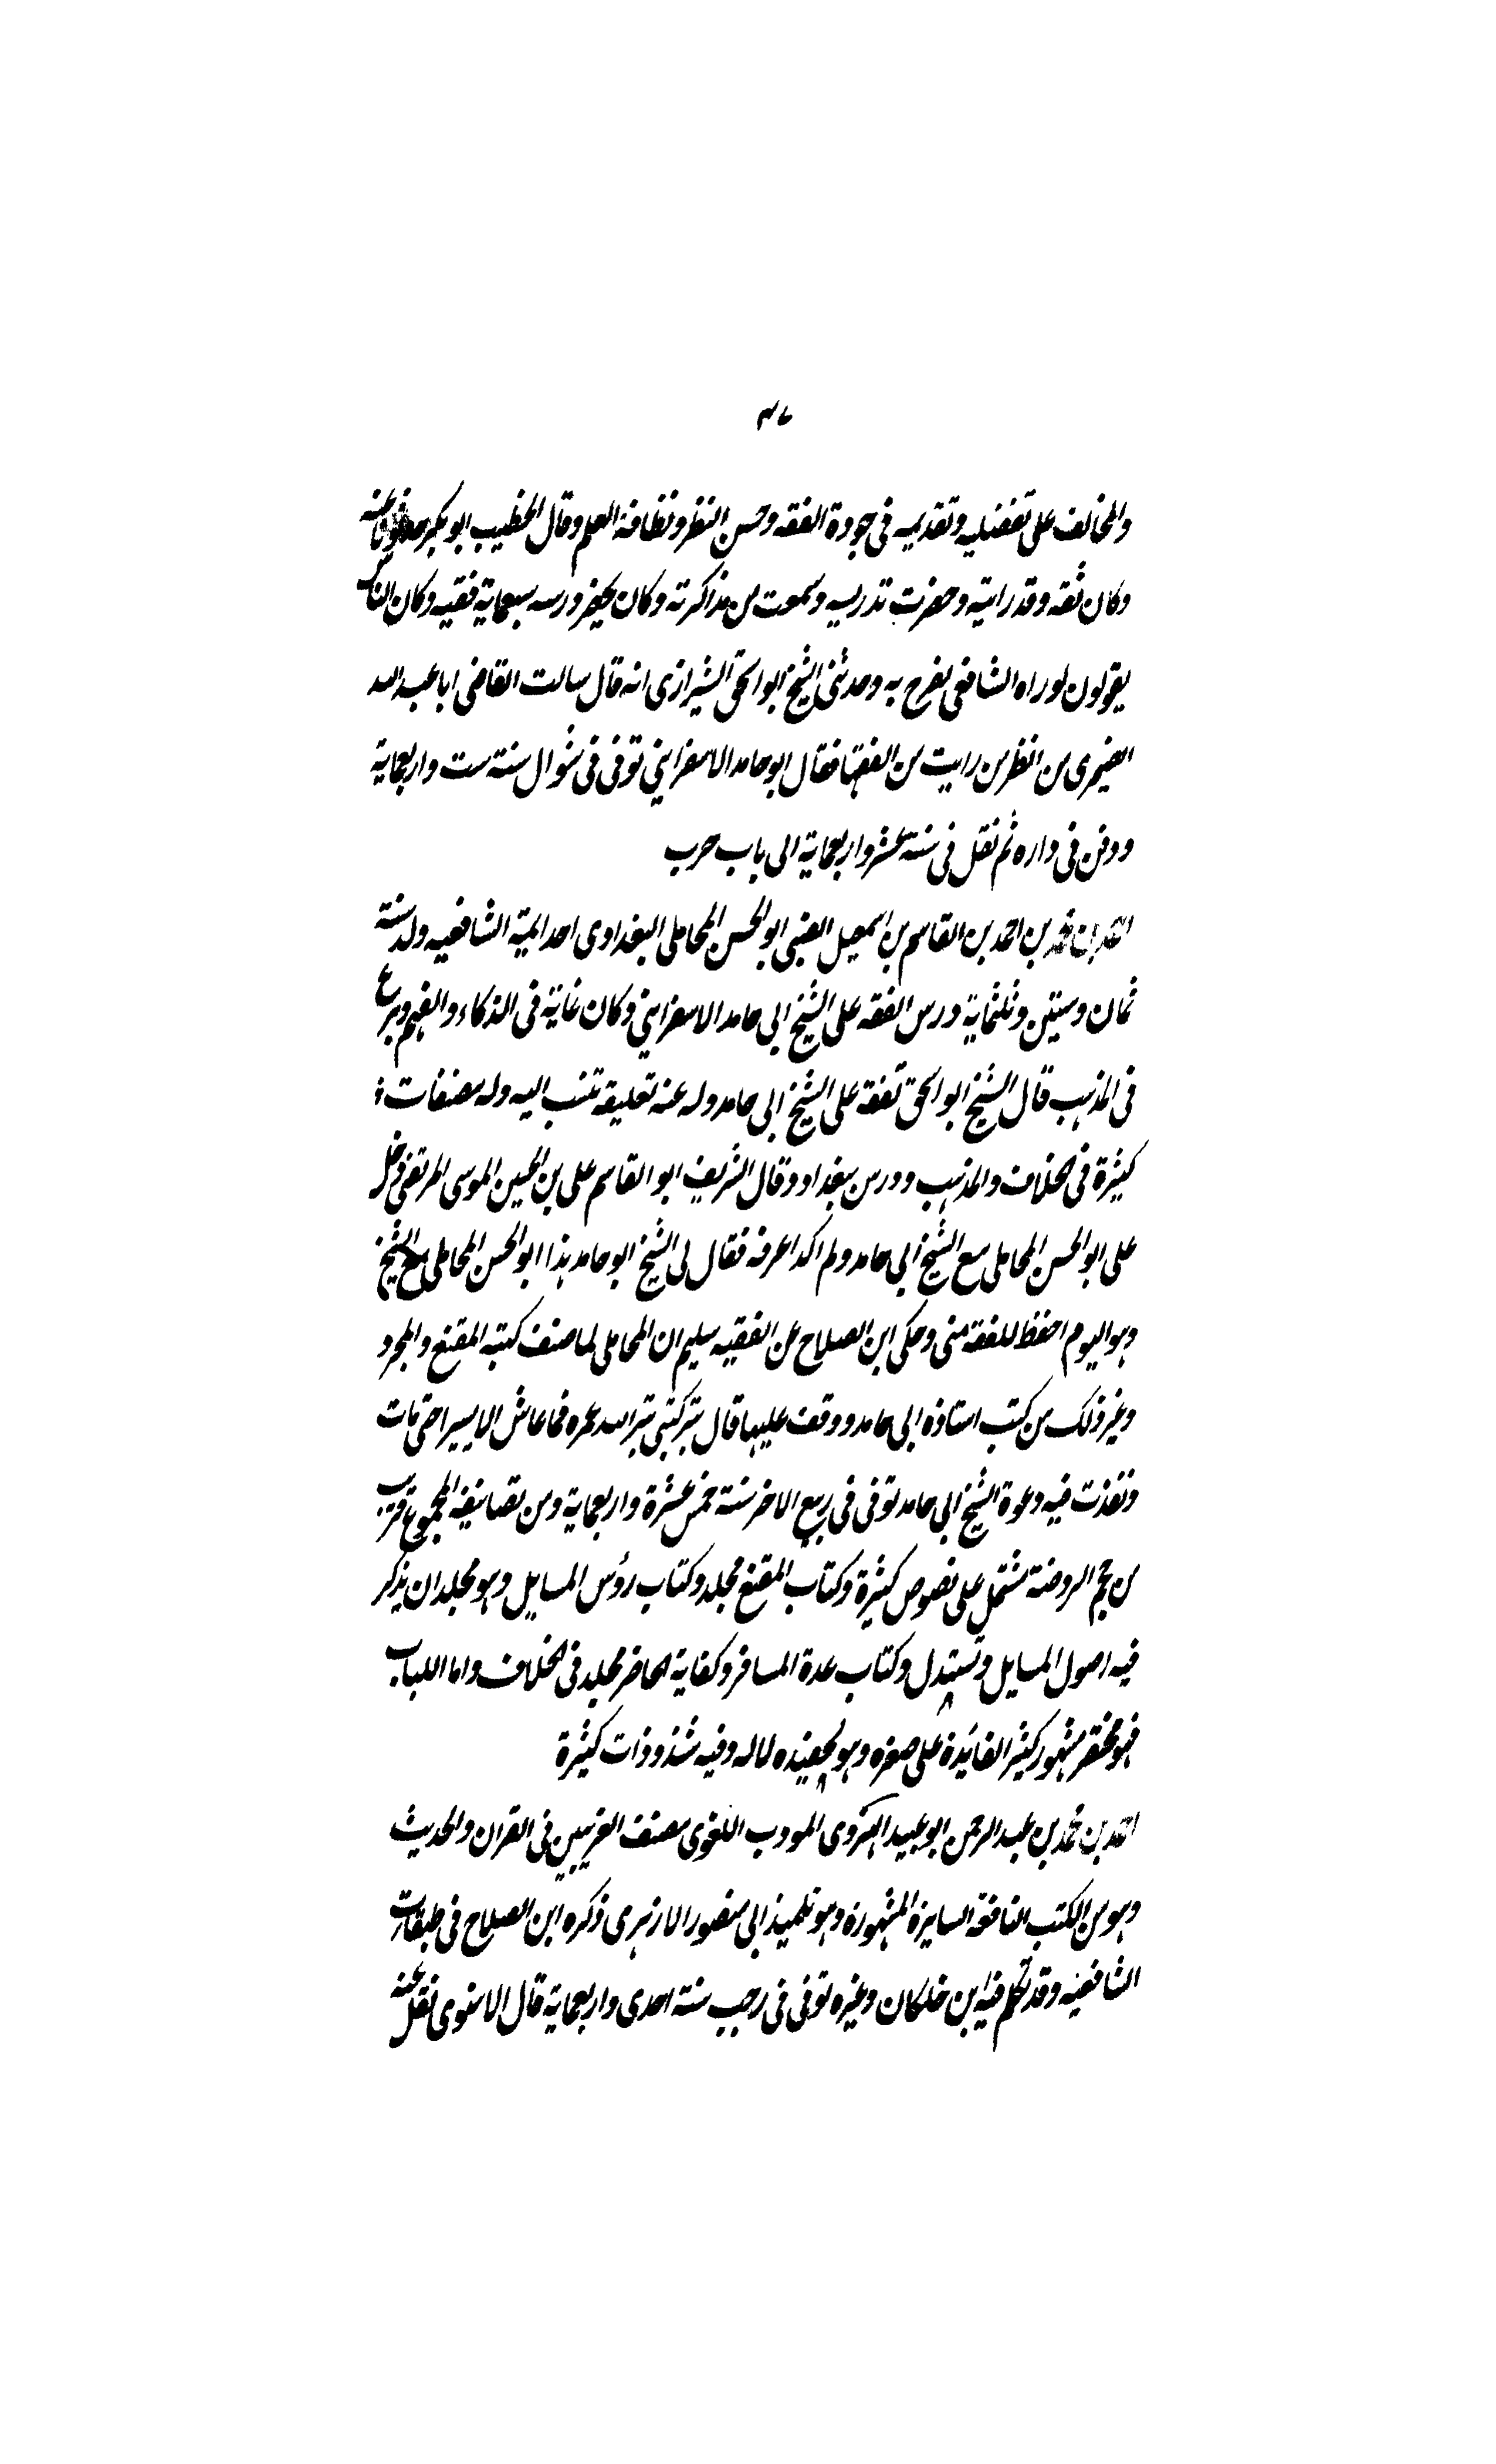 ٣٧
والمخالف على تفضيله وتقديمه فى جودة الفقه وحسن النظر ونظافة العلم وقال الخطيب ابو بكر حدثونا عنه
وكان ثقه وقد رايته وحضرت تدريسه وسمعت من يذاكرته وكان يحضر درسه سبعماية فقيه وكان الناس
يقولون لو راه الشافعى لفرح به وحدثنى الشيخ ابو اسحق الشيرازى انه قال سالت القاضى ابا عبد الله
الصيمرى من انظر من رايت من الفقها فقال ابو حامد الاسفراينى توفى فى شوال سنة ست واربعماية
ودفن فى داره ثم نقل فى سنة عشر واربعماية الى باب حرب
احمد بن محمد بن احمد بن القاسم بن اسمعيل الضبى ابو الحسن المحاملى البغدادى احد ايمة الشافعيه ولد سنة
ثمان وستين وثلثماية درس الفقه على الشيخ ابى حامد الاسفراينى وكان غاية فى الذكاء والفهم وبرع
فى المذهب قال الشيخ ابو اسحق تفقه على الشيخ ابى حامد وله عنه تعليقة تنسب اليه وله مصنفات
كثيرة فى الخلاف والمذهب ودرس ببغداد وقال الشريف ابو القاسم على بن الحسين الموسى المرتضى دخل
على ابو الحسن المحاملى مع الشيخ ابى حامد ولم اكد اعرفه فقال لى الشيخ ابو حامد هذا ابو الحسن المحاملى الشيخ
وهو اليوم احفظ للفقه منى وحكى ابن الصلاح عن الفقيه سليم ان المحاملى لما صنف كتبه المقنع والمجرد
وغير ذلك من كتب استاذه ابى حامد ووقف عليها قال بتر كتبى بتر الله عمره فما عاش الا يسيرا حتى مات
ونفذت فيه دعوة الشيخ ابى حامد توفى فى ربيع الاخر سنة خمس عشرة واربعماية ومن تصانيفه المجموع قريب
من حجم الروضة مشتمل على نصوص كثيرة وكتاب المقنع مجلد وكتاب رؤس المسايل وهو مجلدان يذكر
فيه اصول المسايل ويستدل وكتاب عدة المسافر وكفاية الحاضر مجلد فى الخلاف واما اللباب
فهو مختصر مشهور كثير الفايدة على صغره وهو لحفيده لا له وفيه شذوذات كثيرة
احمد بن محمد بن عبد الرحمن ابو عبيد الهروى المودب اللغوى مصنف الغريبين فى القران والحديث
وهو من الكتب النافعة السايرة المشهورة وهو تلميذ ابى منصور الازهرى ذكره ابن الصلاح فى طبقات
الشافعيه وقد تكلم فيه ابن خلكان وغيره توفى فى رجب سنة احدى واربعماية قال الاسنوى نقل عنه